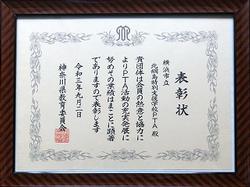 表彰状
横浜市立
北綱島特別支援学校PTA殿
貴団体は会員の熱意と協力に
よりPTA活動の充実発展に
努めその業績はまことに顕著
でありますので表彰します
令和三年九月二日
神奈川県教育委員会